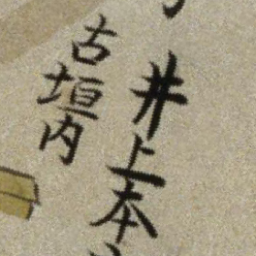 井上本
古垣内